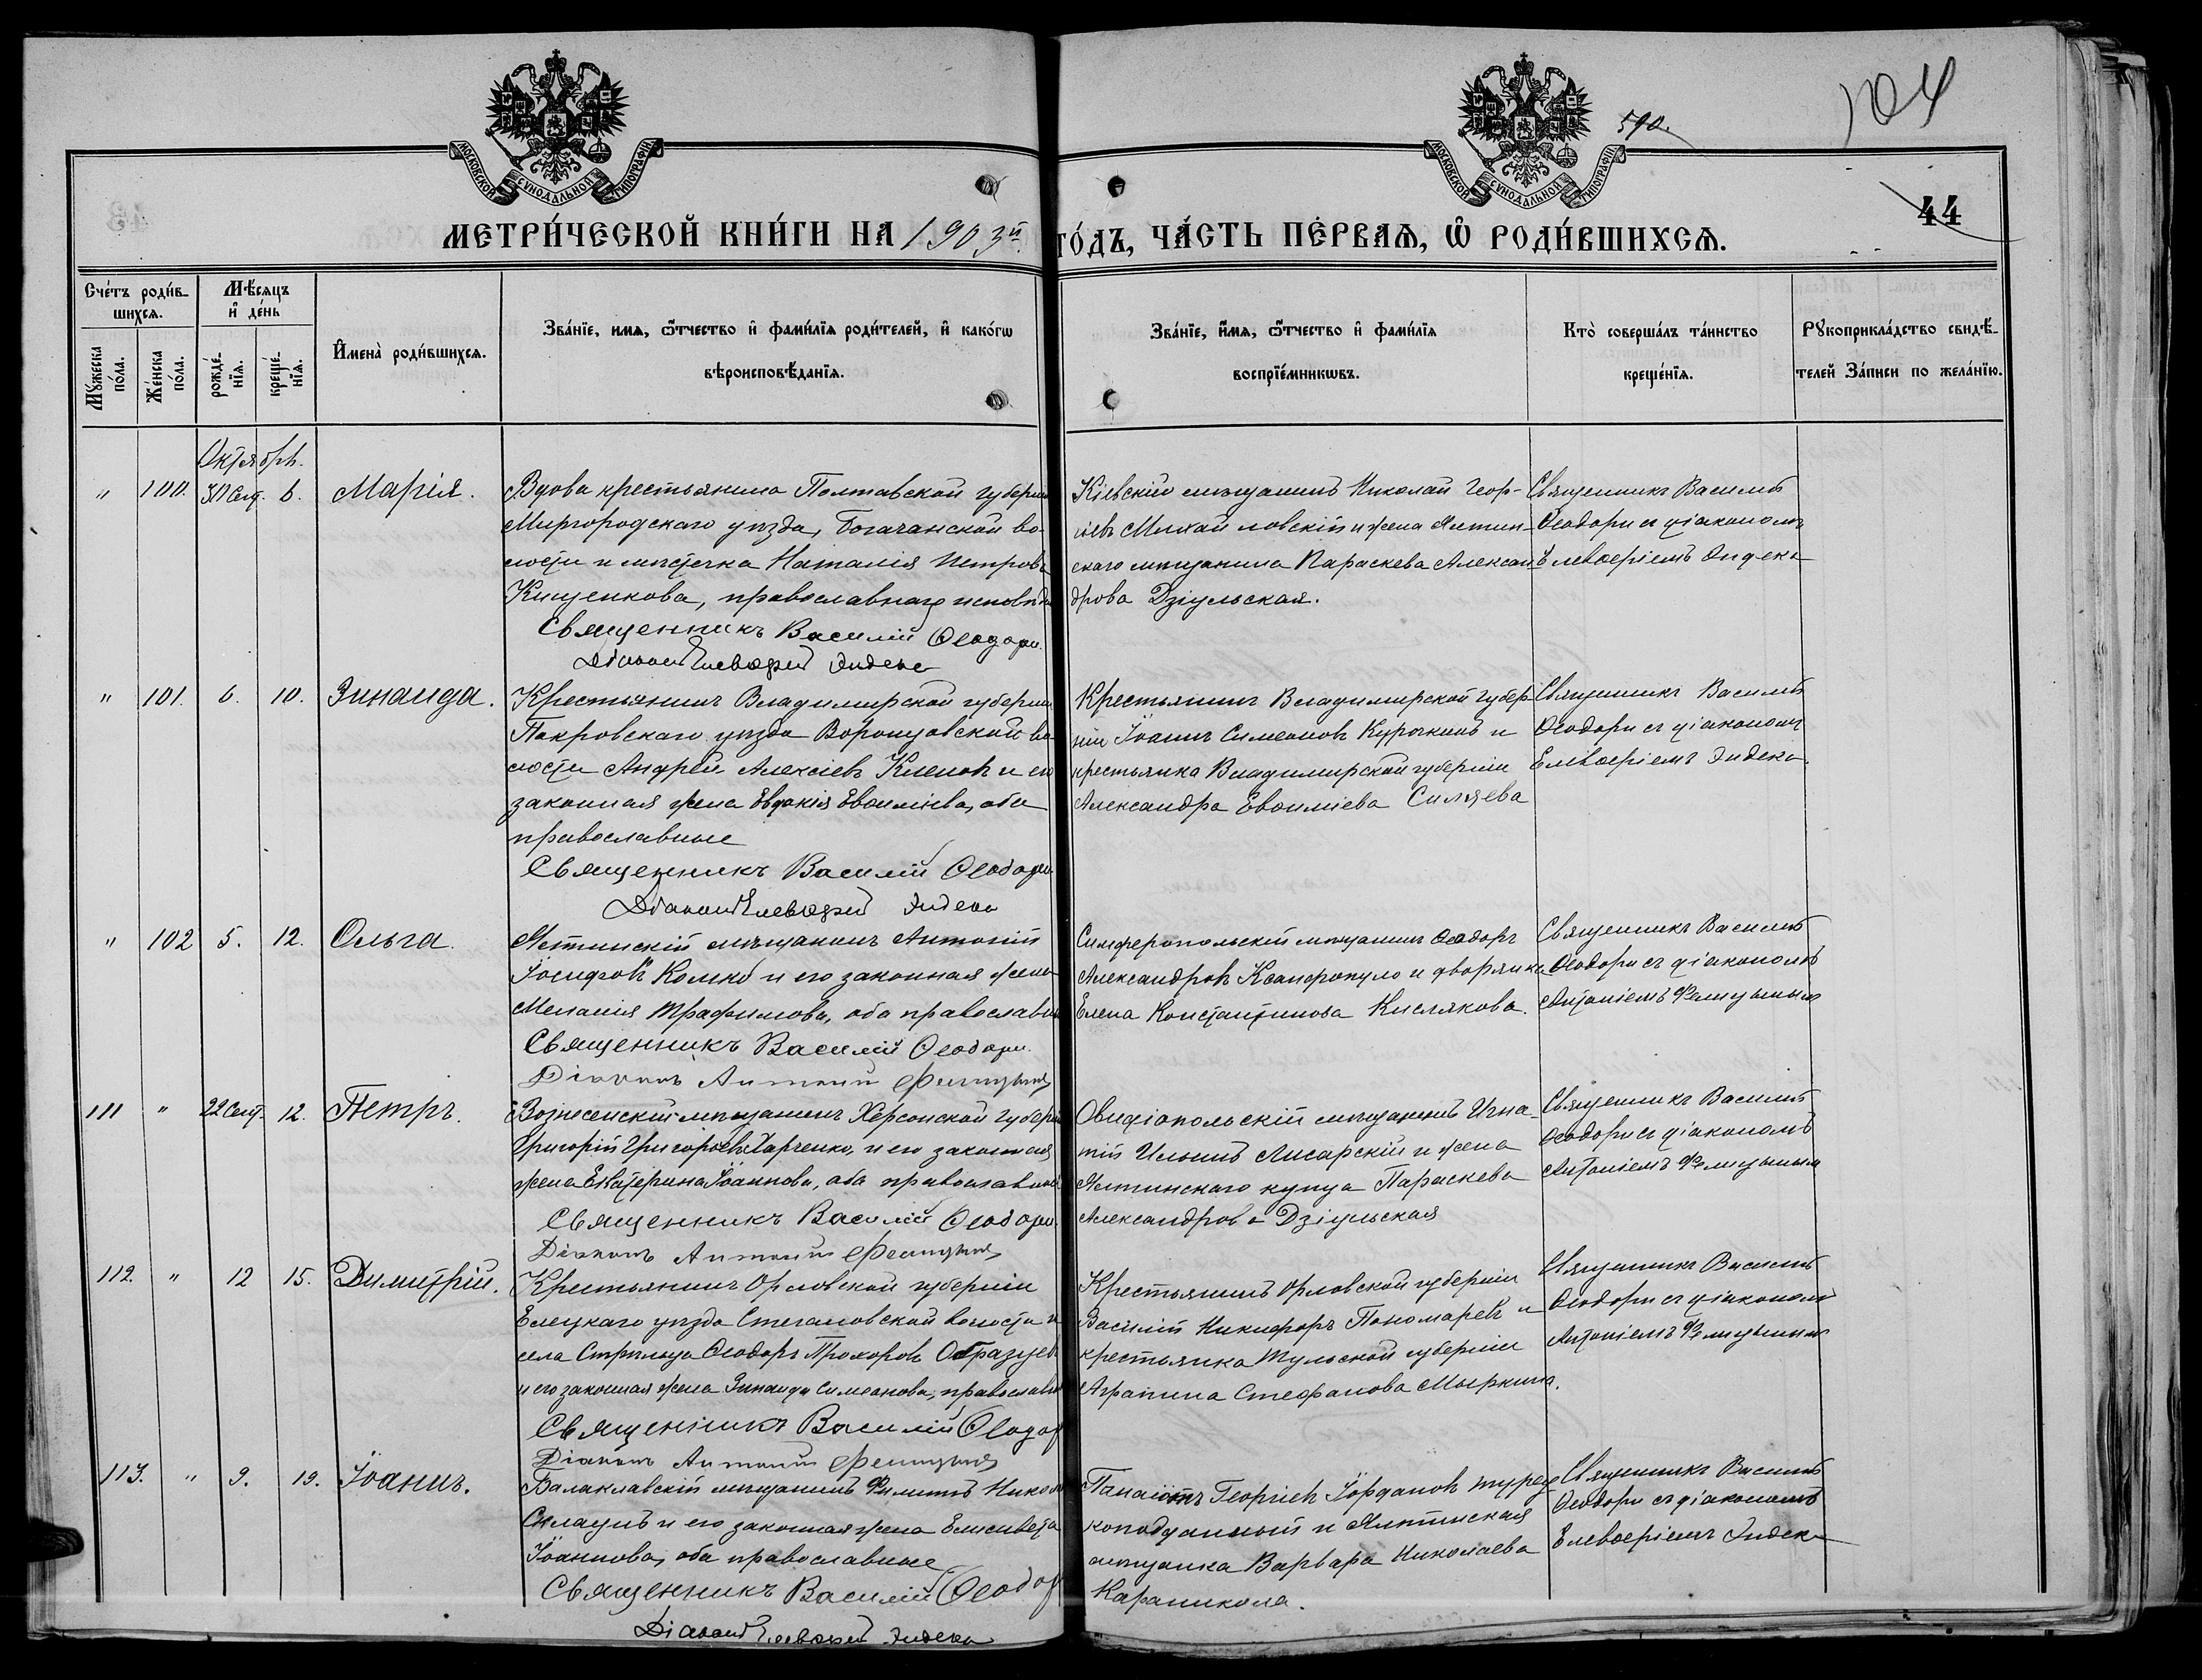 590.
104
44
МОСКОВСКОЙ СѴНОДАЛЬНОЙ ТИПОГРАФІИ
МОСКОВСКОЙ СѴНОДАЛЬНОЙ ТИПОГРАФІИ
МЕТРИ́ЧЕСКОЙ КНИ́ГИ НА 1903й ГО́ДЪ, ЧА́СТЬ ПЕ́РВАѦ, Ѽ РОДИ́ВШИХСѦ.
Сче́тъ роди́вшихсѧ.
Мꙋ́жеска по́ла.
Же́нска по́ла.
Мѣ́сѧцъ и҆ де́нь
рожде́нїѧ.
креще́нїѧ.
И҆мена̀ роди́вшихсѧ.
Зва́нїе, имѧ, ѻ҆́тчество и҆ фами́лїѧ роди́телей, и҆ како́гѡ вѣроисповѣ́данїѧ.
Зва́нїе, и҆́мѧ, ѻ҆́тчество и҆ фами́лїѧ воспрїе́мникѡвъ.
Кто̀ соверша́лъ та́инство креще́нїѧ.
Рꙋкоприкла́дство свидѣ́телей За́писи по жела́нїю.
Октябрь.
" 100. 30 Сент. 6. Марія.
Вдова крестьянина Полтавской губерніи
Миргородскаго уѣзда, Богачанской во-
лости и мѣстечка Наталія Петрова
Кищенкова, православнаго исповѣда
Священникъ Василій Ѳеодори.
Діаконъ Елевѳерій Эндека
Кіевскій мѣщанинъ Николай Геор-
гіевъ Михайловскій и жена Ялтин-
скаго мѣщанина Параскева Алексан-
дрова Дзіульская.
Священникъ Василій
Ѳеодори съ діакономъ
Елевѳеріемъ Эндека
" 101. 6. 10. Зинаида.
Крестьянинъ Владимирской губерніи
Покровскаго уѣзда Воронцовской во-
лости Андрей Алексіевъ Кленовъ и его
законная жена Евдокія Евѳиміева, оба
православные
Священникъ Василій Ѳеодори
Діаконъ Елевѳерій Эндека
Крестьянинъ Владимирской губер-
ніи Іоаннъ Симеоновъ Курочкинъ и
крестьянка Владимирской губерніи
Александра Евѳиміева Силяева
Священникъ Василій
Ѳеодори съ діакономъ
Елевѳеріемъ Эндека.
" 102 5. 12. Ольга.
Ялтинскій мѣщанинъ Антоній
Іосифовъ Комко и его законная жена
Меланія Трофимова, оба православны
Священникъ Василій Ѳеодори.
Діаконъ Антоній Фелицынъ
Симферопольскій мѣщанинъ Ѳеодоръ
Александровъ Ксанфопуло и дворянка
Елена Константинова Кислякова.
Священникъ Василій
Ѳеодори съ діакономъ
Антоніемъ Фелицынымъ
111 " 22 Сент. 12. Петръ.
Вознесенскій мѣщанинъ Херсонской губерніи
Григорій Григоріевъ Харченко, и его законная
жена Екатерина Іоаннова, оба православные
Священникъ Василій Ѳеодори.
Діаконъ Антоній Фелицынъ
Овидіопольскій мѣщанинъ Игна-
тій Ильинъ Лисарскій и жена
Ялтинскаго купца Параскева
Александрова Дзіульская
Священникъ Василій
Ѳеодори съ діакономъ
Антоніемъ Фелицынымъ
112. " 12 15. Димитрій.
Крестьянинъ Орловской губерніи
Елецкаго уѣзда Стегаловской волости и
села Стрѣльца Ѳеодоръ Прохоровъ Образцевъ
и его законная жена Зинаида Симеонова, православны
Священникъ Василій Ѳеодор
Діаконъ Антоній Фелицынъ
Крестьянинъ Орловской губерніи
Василій Никифоръ Пономаревъ и
крестьянка Тульской губерніи
Агрипина Стефанова Мыркина.
Священникъ Василій
Ѳеодори съ діакономъ
Антоніемъ Фелицынымъ
113. " 9. 19. Іоаннъ.
Балаклавскій мѣщанинъ Филиппъ Никол
и его законная жена Елисавета
Іоаннова, оба православные
Священникъ Василій Ѳеодор
Діаконъ Елевѳерій Эндека
Панаіотъ Георгіевъ Іордановъ турец-
коподданный и Ялтинская
мѣщанка Варвара Николаева
Караникола.
Священникъ Василій
Ѳеодори съ діакономъ
Елевѳеріемъ Эндека